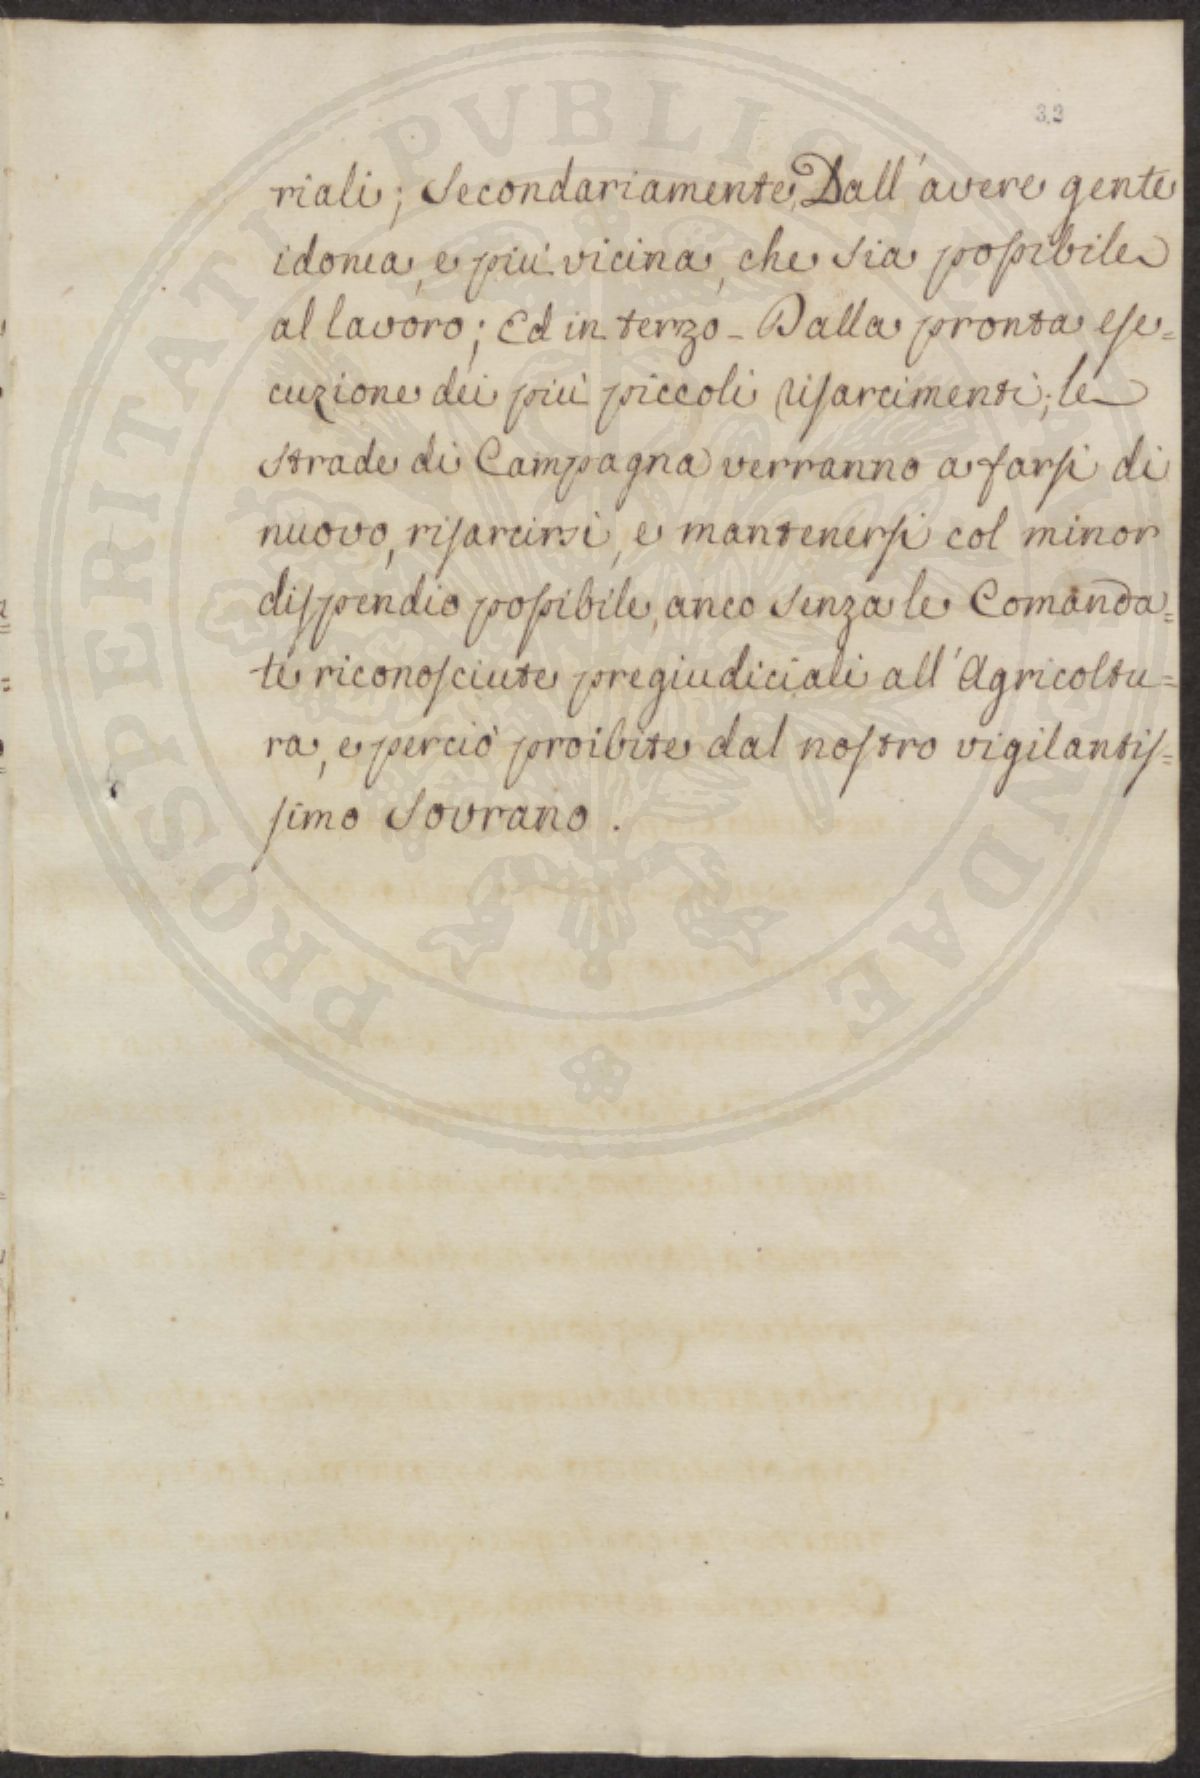 32
riali; Secondariamente, Dall'avere gente
idonea, e più vicina, che sia possibile
al lavoro; Ed in terzo - Dalla pronta ese=
cuzione dei più piccoli risarcimenti; le
strade di Campagna verranno a farsi di
nuovo, risarcirsi, e mantenersi col minor
dispendio possibile, anco senza le Comanda=
te riconosciute pregiudiciali all'Agricoltu=
ra, e perciò proibite dal nostro vigilantis=
simo Sovrano.
PROSPERITATI PUBLICAE AUGENDAE